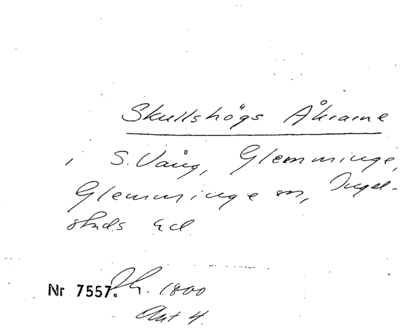 Skullshögs Åkrarne
i S. Vång, Glemminge,
Glemminge sn, Ingel-
stads hd
Nr 7557. 1800
Akt 4.